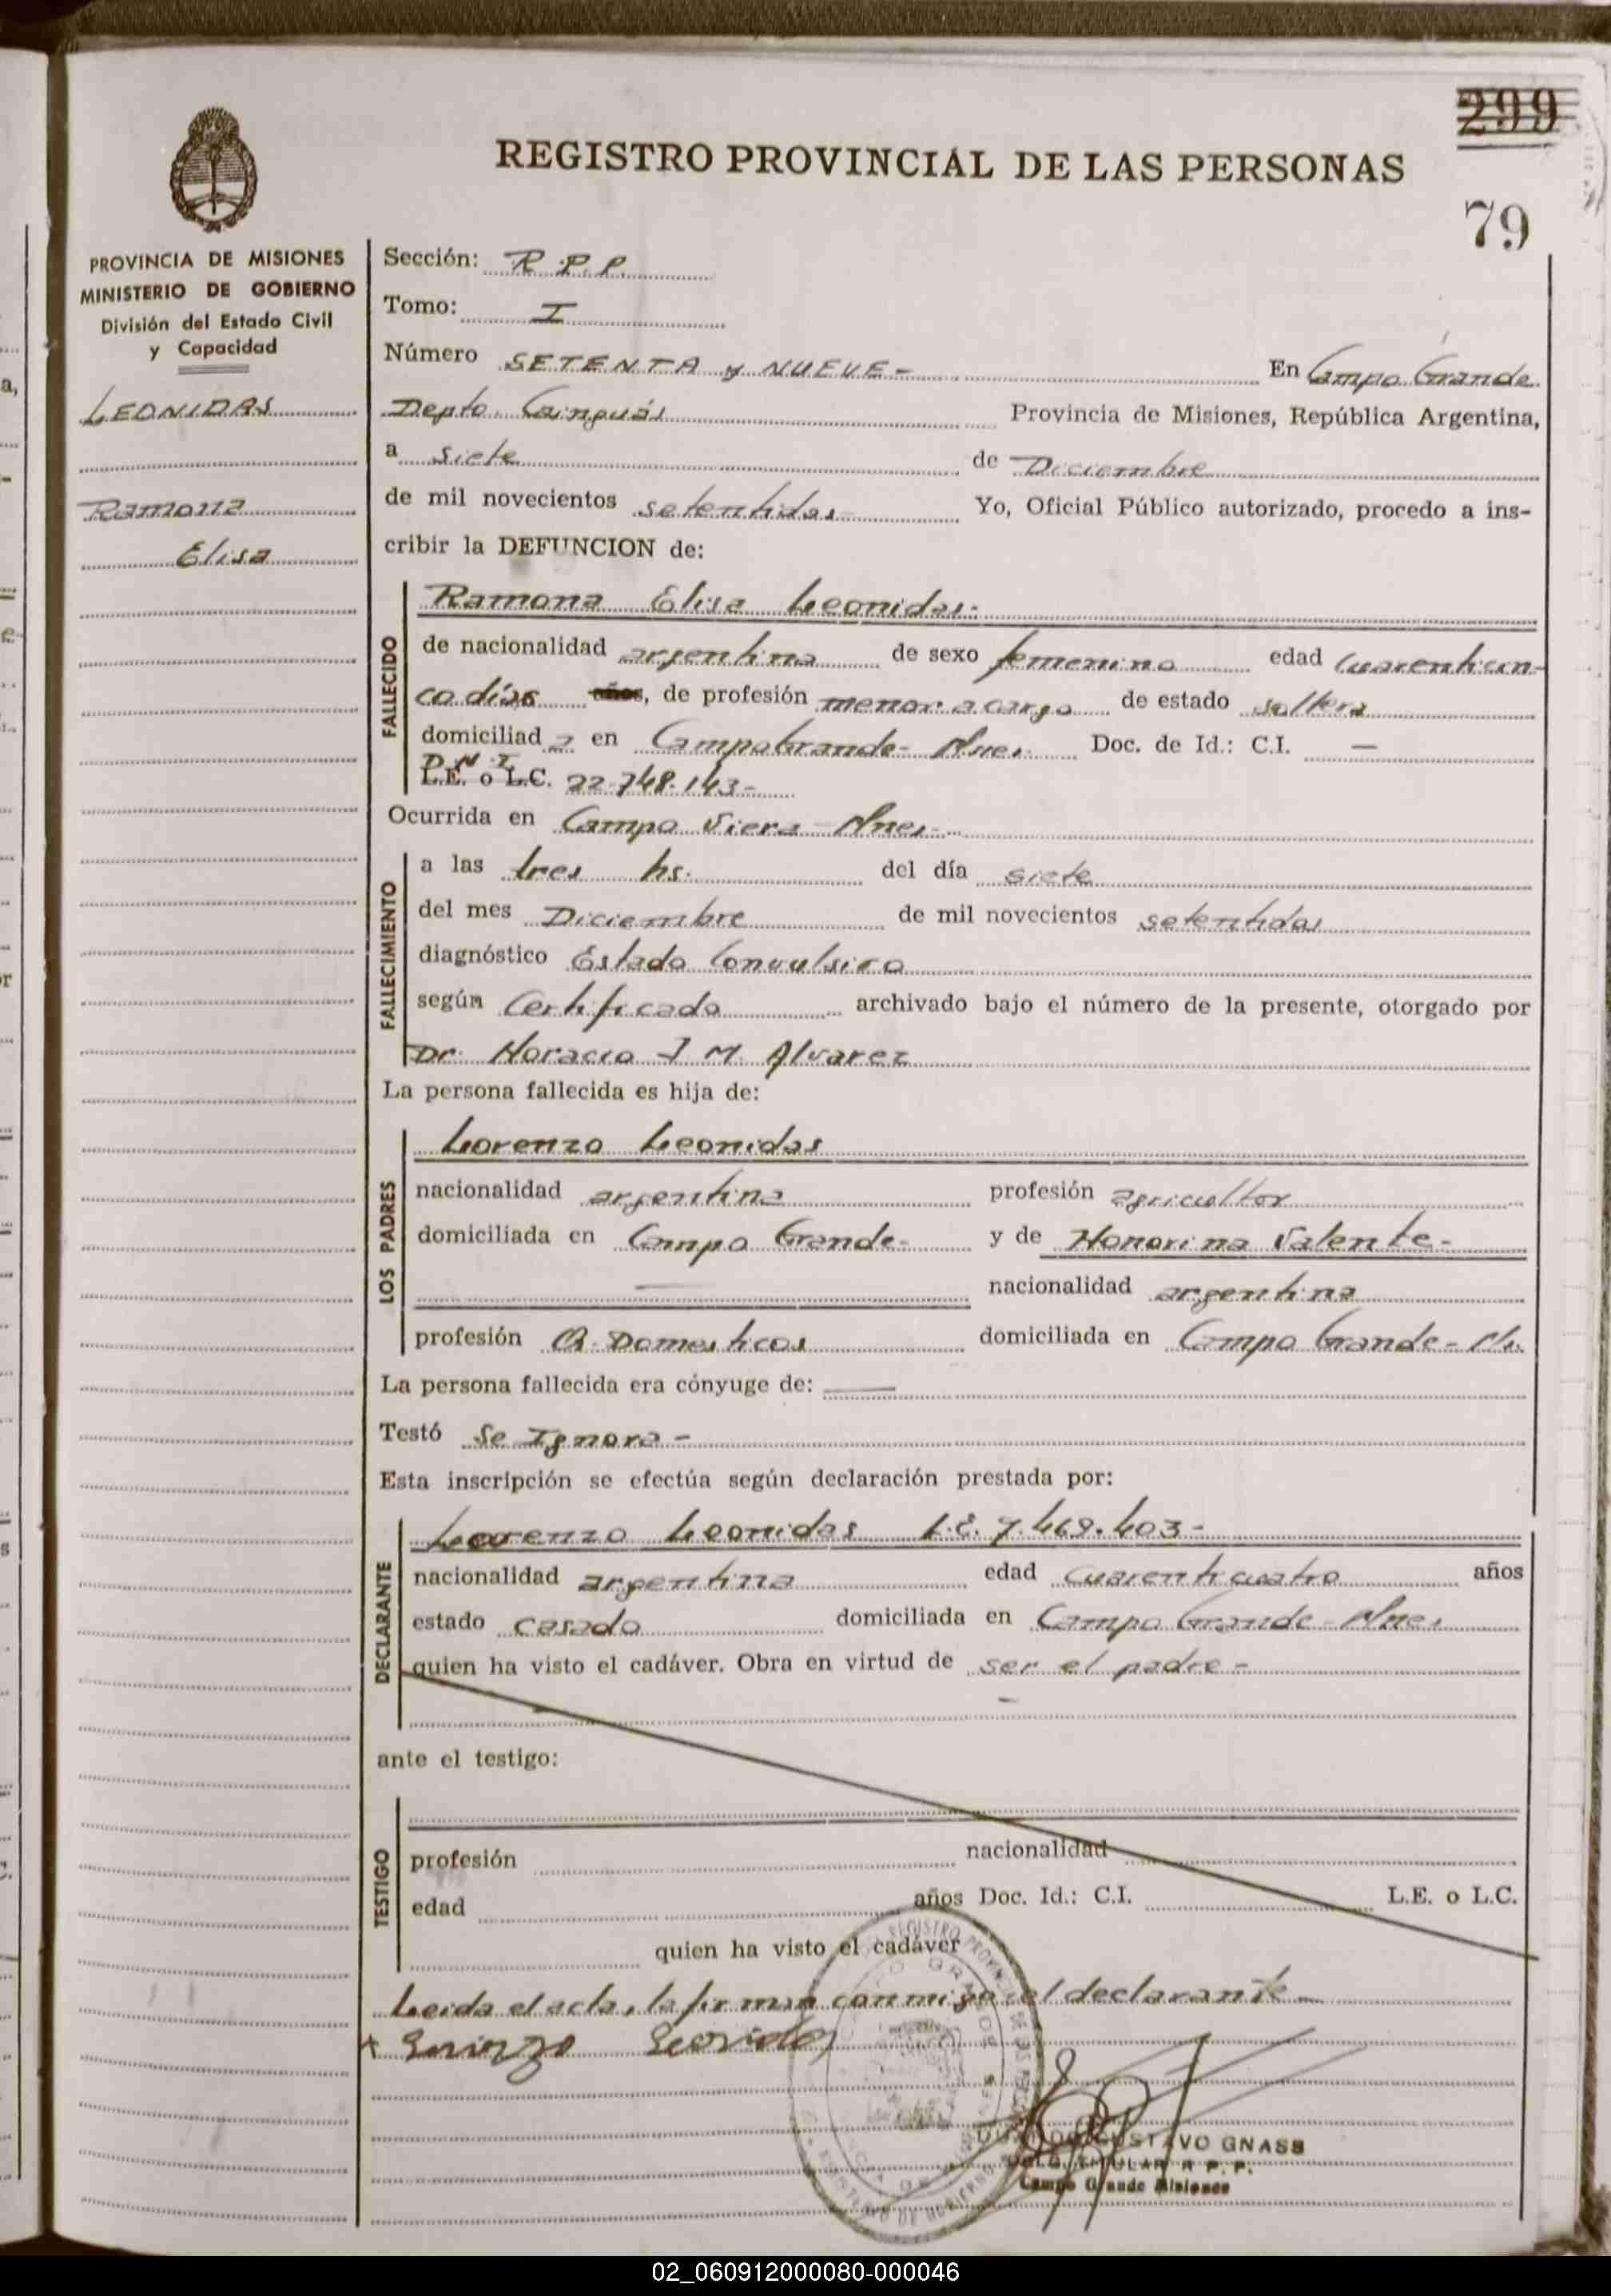 299
REGISTRO PROVINCIAL DE LAS PERSONAS
79
PROVINCIA DE MISIONES
MINISTERIO DE GOBIERNO
División del Estado Civil
y Capacidad
LEONIDAS
Ramona
Elisa
Sección: R.P.P.
Tomo: I
Número SETENTA y NUEVE - En Campo Grande
Depto. Cainguás Provincia de Misiones, República Argentina,
a siete de Diciembre
de mil novecientos setentidos Yo, Oficial Público autorizado, procedo a ins-
cribir la DEFUNCION de:
FALLECIDO
Ramona Elisa Leonidas.-
de nacionalidad argentina de sexo femenino edad cuarenticin-
co días años, de profesión menor a cargo de estado soltera
domiciliad a en Campo Grande - Mnes. Doc. de Id.: C.I. —
D.N.I.
L.E. o L.C. 22.748.143-
Ocurrida en Campo Viera - Mnes.-
FALLECIMIENTO
a las tres hs. del día siete
del mes Diciembre de mil novecientos setentidos
diagnóstico Estado Convulsivo
según Certificado archivado bajo el número de la presente, otorgado por
Dr. Horacio J M. Alvarez
La persona fallecida es hija de:
LOS PADRES
Lorenzo Leonidas
nacionalidad argentina profesión agricultor
domiciliada en Campo Grande- y de Honorina Valente-
— nacionalidad argentina
profesión Q. Domesticos domiciliada en Campo Grande - Ms.
La persona fallecida era cónyuge de: —
Testó Se Ignora -
Esta inscripción se efectúa según declaración prestada por:
DECLARANTE
Lorenzo Leonidas L.E. 7.469.403-
nacionalidad argentina edad cuarenticuatro años
estado casado domiciliada en Campo Grande - Mnes
quien ha visto el cadáver. Obra en virtud de ser el padre -
ante el testigo:
TESTIGO
profesión nacionalidad
edad años Doc. Id.: C.I. L.E. o L.C.
quien ha visto el cadáver
Leida el acta, la firman conmigo el declarante -
GUSTAVO GNASS
TITULAR R P. P.
Campo Grande Misiones
02_060912000080-000046